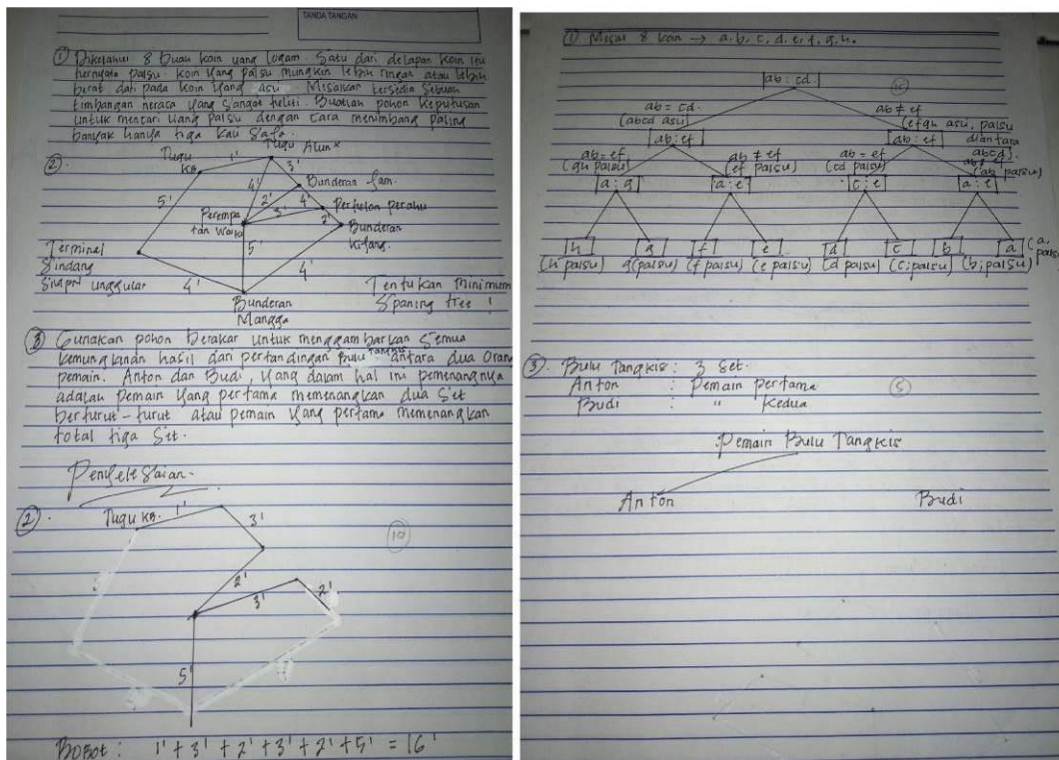 TANDA TANGAN
① Diketahui 8 buah koin uang logam. Satu dari delapan koin itu
ternyata palsu. koin yang palsu mungkin lebih ringan atau lebih
berat dari pada koin yang asli. Misalkan tersedia sebuah
timbangan neraca yang sangat teliti. Buatlah pohon keputusan
untuk mencari uang palsu dengan cara menimbang paling
banyak hanya tiga kali saja.
②.
Tugu KB
1'
Tugu Alun²
3'
4'
Bunderan
2'
4'
3'
Perempatan
Bunderan Kijang.
5'
5'
4'
Terminal
Sindang
4'
Bunderan
Mangga
Tentukan Minimum
Spaning tree !
③ Gunakan pohon berakar untuk menggambarkan semua
kemungkinan hasil dari pertandingan bulu tangkis antara dua orang
pemain. Anton dan Budi, yang dalam hal ini pemenangnya
adalah pemain yang pertama memenangkan dua set
berturut-turut atau pemain yang pertama memenangkan
total tiga set.
Penyelesaian.
②.
Tugu KB.
1'
3'
10
2'
3'
2'
5'
Bobot : 1'+3'+2'+3'+2'+5' = 16'
① Misal 8 koin → a, b, c, d, e, f, g, h.
ab : cd.
ab = cd.
(abcd asli)
ab ≠ ef
(efgh asli, palsu
diantara
abcd).
ab : ef
ab : ef
ab = ef
(gh palsu)
ab ≠ ef
(ef palsu)
ab = ef
(cd palsu)
ab ≠ ef
(ab palsu)
a : g
a : e
c : e
a : e
h
g
f
e
d
c
b
a
(h palsu) g(palsu) (f palsu) (e palsu) (d palsu) (c; palsu) (b; palsu) (a,
palsu
③. Bulu Tangkis : 3 Set.
Anton : Pemain pertama
5
Budi : " kedua
Pemain Bulu Tangkis
Anton Budi